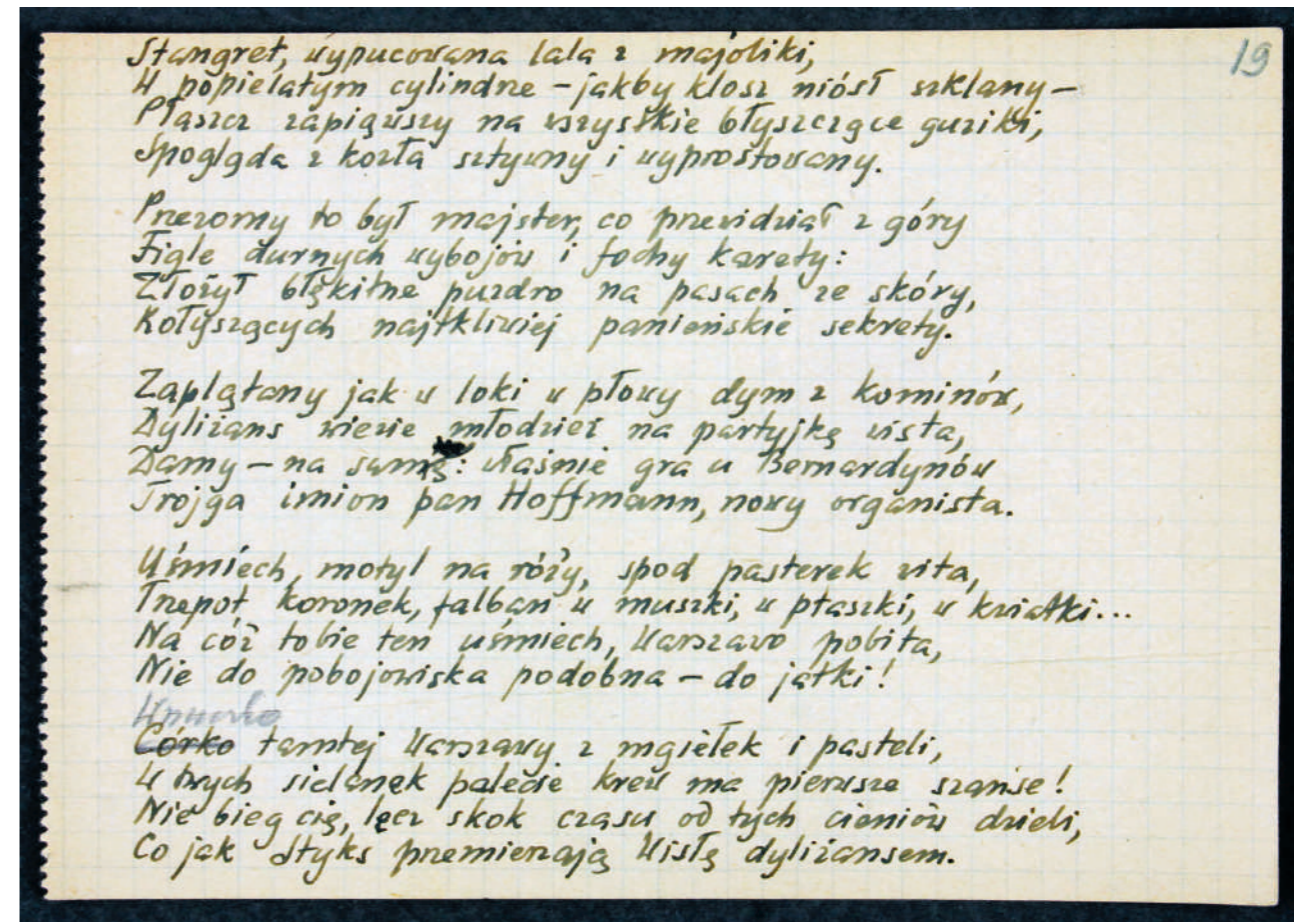 19
Stangret, wypucowana lala z majoliki,
W popielatym cylindrze – jakby klosz niósł szklany –
Płaszcz zapiąwszy na wszystkie błyszczące guziki,
Spogląda z kozła sztywny i wyprostowany.
Przezorny to był majster, co przewidział z góry
Figle durnych wybojów i fochy karety:
Złożył błękitne puzdro na pasach ze skóry,
Kołyszących najtkliwiej panieńskie sekrety.
Zaplątany jak w loki w płowy dym z kominów,
Dyliżans wiezie młodzież na partyjkę wista,
Damy – na sumę: właśnie gra u Bernardynów
Trojga imion pan Hoffmann, nowy organista.
Uśmiech, motyl na róży, spod pasterek wita,
Trzepot koronek, falban w muszki, w ptaszki, w kwiatki...
Na cóż tobie ten uśmiech, Warszawo pobita,
Nie do pobojowiska podobna – do jatki!
Wnuczko
Córko tamtej Warszawy z mgiełek i pasteli,
W twych sielanek palecie krew ma pierwsze szanse!
Nie bieg cię, lecz skok czasu od tych cieniów dzieli,
Co jak Styks przemierzają Wisłę dyliżansem.